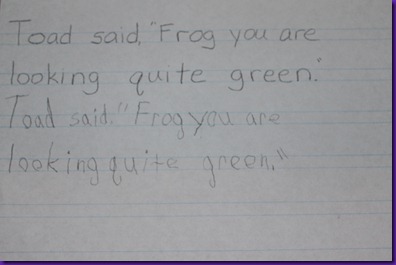 Toad said, "Frog you are
looking quite green."
Toad said. "Frog you are
looking quite green."